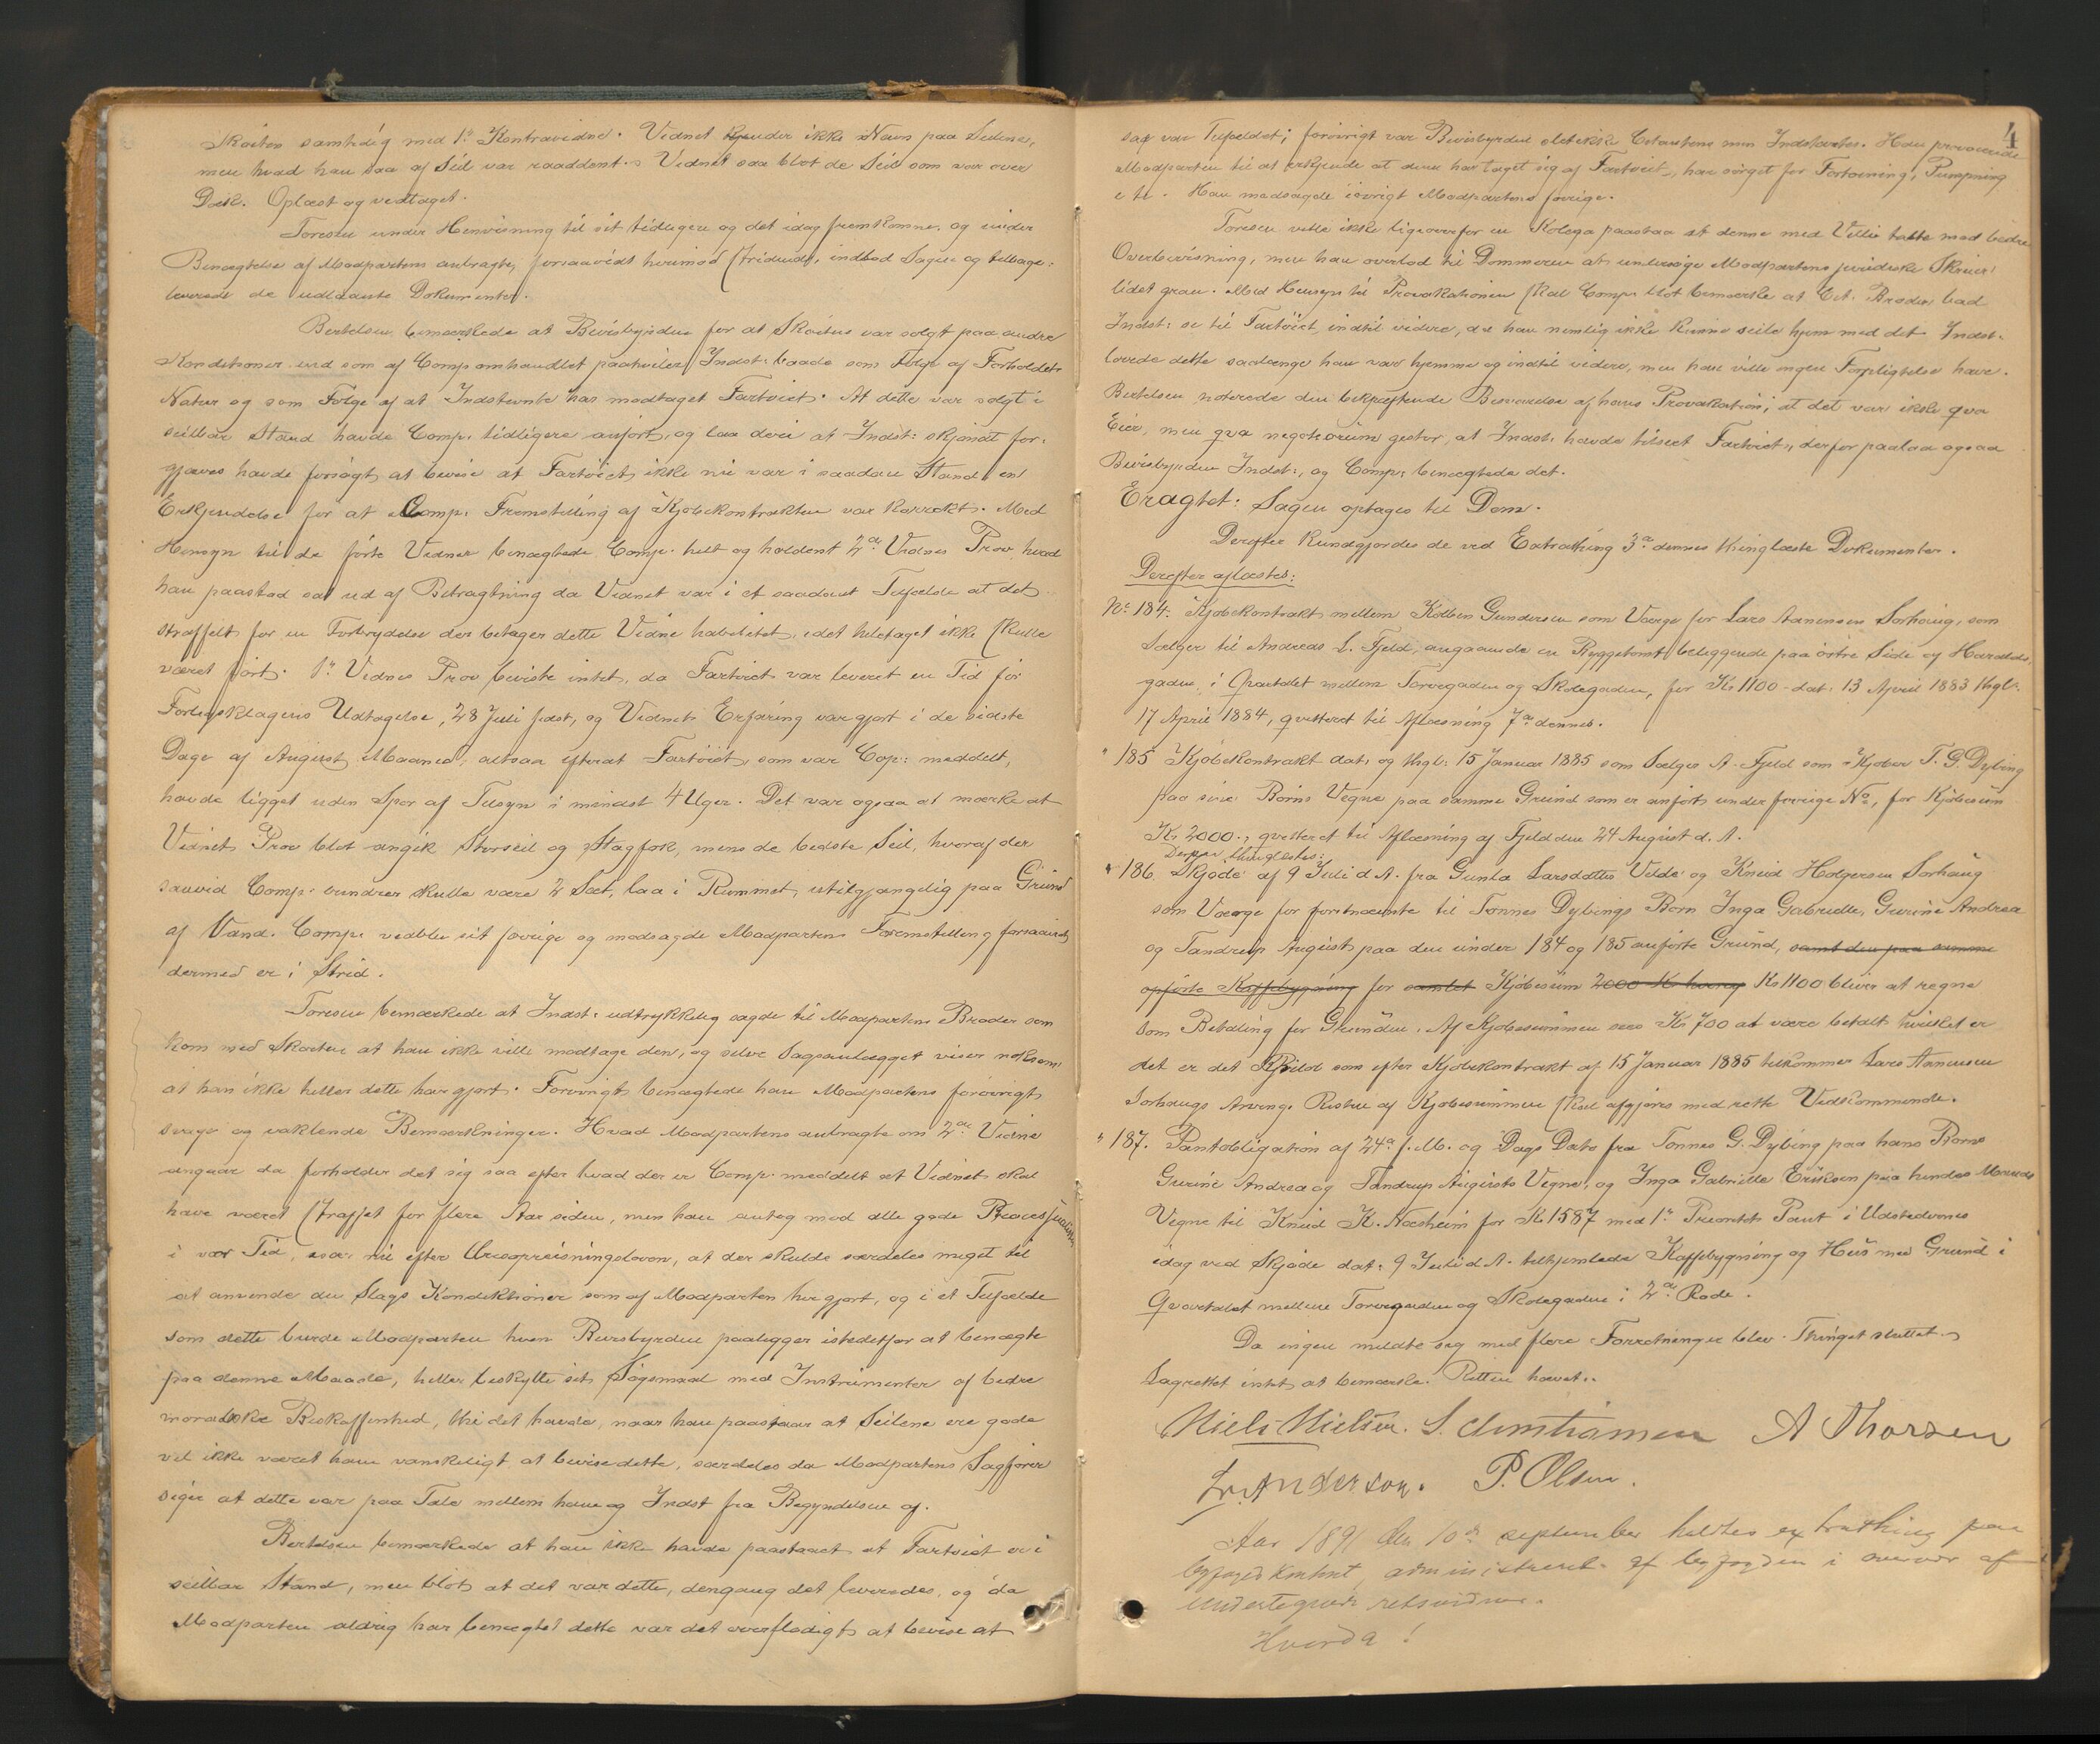 Skøiten samtidig med 1ste Kontravidne. Vidnet kjender ikke Navn paa Seilene,
men hvad han saa af Seil var raaddent. Vidnet saa blot de Seil som var over
Dæk. Oplæst og vedtaget.
Toresen under Henvisning til sit tidligere og det idag fremkomne, og under
Benægtelse af Modpartens anbragte, forsaavidt herimod stridende, indlod Sagen og tilbage-
leverede de udlaante Dokumenter.
Bertelsen bemærkede at Bevisbyrden for at Skøiten var solgt paa andre
Konditioner end som af Comp. omhandlet paahviler Indst. baade som Følge af Forholdets
Natur og som Følge af at Indstevnte har modtaget Fartøiet. At dette var solgt i
seilbar Stand havde Comp. tidligere anført, og laa deri at Indst: skjøndt for-
gjæves havde forsøgt at bevise at Fartøiet ikke nu var i saadan Stand en
Erkjendelse for at Comp. Fremstilling af Kjøbekontrakten var korrekt. Med
Hensyn til de førte Vidner benægtede Comp. helt og holdent 2det Vidnes Prov, hvad
han paastod sat ud af Betragtning da Vidnet var i et saadant Tilfælde at det
straffedes for en Forbrydelse der betager dette Vidne habilitet, idet heletaget ikke skulle
været ført. 1ste Vidnes Prov beviste intet, da Fartøiet var leveret en Tid før
Forligsklagens Udtagelse, 28 Juli sidst, og Vidnets Erfaring var gjort i de sidste
Dage af August Maaned, altsaa efterat Fartøiet, som var Cop: meddelt,
havde ligget uden Spor af Tilsyn i mindst 4 Uger. Det var ogsaa at mærke at
Vidnets Prov blot angik Storseil og Stagfok, mens de bedste Seil, hvoraf der
saavid Comp. erindrer skulle være 2 Sæt, laa i Rummet, utilgjængelig paa Grund
af Vand. Comp. vedblev sit forrige og modsagde Modpartens Fremstilling forsaavidt
dermed er i Strid.
Toresen bemærkede at Indst. udtrykkelig sagde til Modpartens Broder som
kom med Skøiten at han ikke ville modtage den, og selve Sagsanlægget viser noksom
at han ikke heller dette har gjort. Forøvrigt benægtede han Modpartens forøvrigt
svage og vaklende Bemærkninger. Hvad Modpartens anbragte om 2det Vidne
angaar da forholder det sig saa efter hvad der er Comp. meddelt at Vidnet skal
have været straffet for flere Aar siden, men han antog mod alle gode Procesjurister
i vor Tid, især nu efter Æresopreisningsloven, at der skulde særdeles meget til
at anvende den Slags Kondiktioner som af Modparten her gjort, og i et Tilfælde
som dette burde Modparten hvem Bevisbyrden paalegger istedetfor at benægte
paa denne Maade, heller beskytte sit Søgsmaal med Instrumenter af bedre
moralske Beskaffenhed, thi det havde, naar han paastaar at Seilene ere gode
vel ikke været ham vanskeligt at bevise dette, særdeles da Modpartens Sagfører
siger at dette var paa Tale mellem ham og Indst fra Begyndelsen af.
Bertelsen bemærkede at han ikke havde paastaaet at Fartøiet er i
seilbar Stand, men blot at det var dette, dengang det leveredes, og da
Modparten aldrig har benægtet dette var det overflødigt at bevise at
4
saa var Tilfældet; forøvrigt var Bevisbyrden slet ikke Citantens men Indstevntes. Han provocerede
Modparten til at erkjende at denne har taget sig af Fartøiet, har sørget for Fortøining, Pumpning
etc. Han modsagde iøvrigt Modpartens forrige.
Toresen ville ikke ligeoverfor en Kolega paastaa at denne med Villie talte mod bedre
Overbevisning, men han overlod til Dommeren at undersøge Modpartens juridiske Skrier
lidet gran. Med Hensyn til Provokationen skal Comp. blot bemærke at Cit. Broder bad
Indst: se til Fartøiet indtil videre, da han nemlig ikke kunne seile hjem med det. Indst.
lovede dette saalænge han var hjemme og indtil videre, men han ville ingen Forpligtelse have.
Bertelsen noterede den bekræftende Besvarelse af hans Provokation; at det var ikke qva
Eier, men qva negotiorum gestor, at Indst. havde tilseet Fartøiet, derfor paalaa ogsaa
Bevisbyrden Indst:, og Comp: benægtede det.
Eragtet: Sagen optages til Dom.
Derefter kundgjordes de ved Extrathing 3die dennes thinglæste Dokumenter.
Derefter aflæstes:
No 184. Kjøbekontrakt mellem Kolben Gundersen som Værge for Lars Aanensen Sørhaug, som
Sælger til Andreas L. Fjeld, angaaende en Byggetomt beliggende paa østre Side af Haralds
gaden i Qvartalet mellem Torvegaden og Skolegaden, for Kr 1100 dat. 13 April 1883 thgl.
17 April 1884, qvitteret til Aflæsning 7de dennes.
" 185 Kjøbekontrakt dat. og thgl: 15 Januar 1885 som Sælger A. Fjeld som Kjøber T. G. Dybing
paa sine Børns Vegne paa samme Grund som er anført under forrige No, for Kjøbesum
Kr 2000., qvitteret til Aflæsning af Fjeld den 24 August d. A.
Derpaa thinglæstes:
" 186. Skjøde af 9 Juli d A. fra Gunla Larsdatter Velde og Knud Holgersen Sørhaug
som Værge for førstnævnte til Tønnes Dybings Børn Inga Gabrielle, Gurine Andrea
og Tandrup August paa den under 184 og 185 anførte Grund, samt den paa samme
opførte Kaffebygning for samlet Kjøbesum 2000 Kr hvoraf Kr 1100 bliver at regne
som Betaling for Grunden. Af Kjøbesummen sees Kr 700 at være betalt hvilket er
det er det Gjæld som efter Kjøbekontrakt af 15 Januar 1885 tilkommer Lars Aanensen
Sørhaugs Arving. Resten af Kjøbesummen skal afgjøres med rette Vedkommende.
" 187. Pantobligation af 24de f. M. og Dags Dato fra Tønnes G. Dybing paa hans Børns
Gurine Andrea og Tandrup Augusts Vegne, og Inga Gabrielle Eriksen paa hendes Mands
Vegne til Knud K. Næsheim for Kr 1587 med 1ste Prioritets Pant i Udstedernes
idag ved Skjøde dat. 9 Juli d. A. tilhjemlede Kaffebygning og Hus med Grund i
Qvartalet mellem Torvegaden og Skolegaden i 2den Rode.
Da ingen meldte sig med flere Forretninger blev Thinget sluttet.
Lagrettet intet at bemærke. Retten hævet.
Niels Nielsen. S. Christiansen A Thorsen
Anderson. P. Olsen.
Aar 1891 den 10de september holdtes extrathing paa
byfogedkontoret, administreret af byfogden i overvær af
undertegnede retsvidner.
Hvorda!